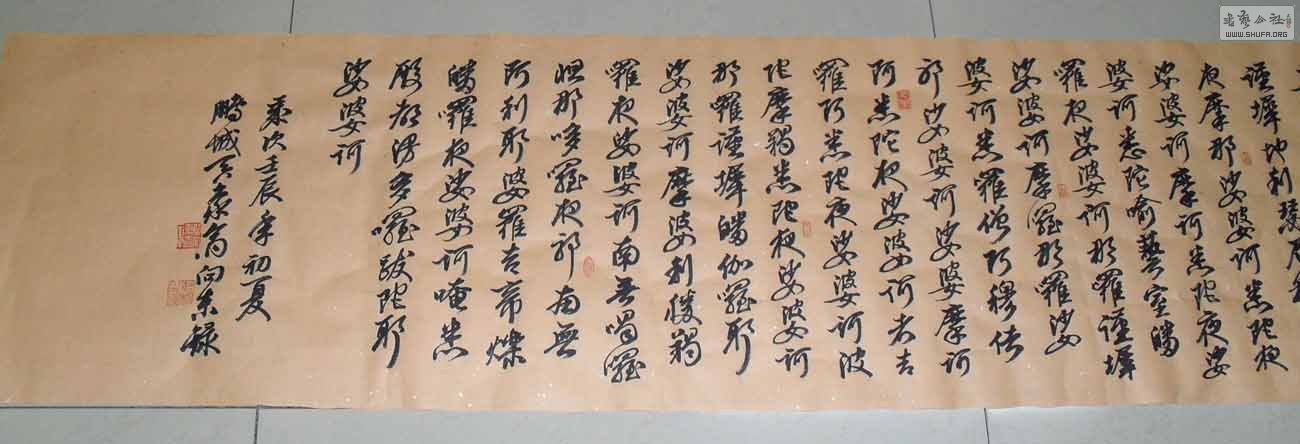 謹墀地利瑟尼
夜摩那娑婆訶悉陀夜
娑婆訶摩訶悉陀夜娑
婆訶悉陀喻藝室皤
羅夜娑婆訶那羅謹墀
娑婆訶摩羅那羅娑
婆訶悉羅僧阿穆佉
耶娑婆訶娑婆摩訶
阿悉陀夜娑婆訶者吉
羅阿悉陀夜娑婆訶波
陀摩羯悉陀夜娑婆訶
那羅謹墀皤伽羅耶
娑婆訶摩婆利勝羯
羅夜娑婆訶南無喝羅
怛那哆羅夜耶南無
阿利耶婆羅吉帝爍
皤羅夜娑婆訶唵悉
殿都漫多囉跋陀耶
娑婆訶
歲次壬辰年初夏
鵬城 向東錄
書藝公社
WWW.SHUFA.ORG